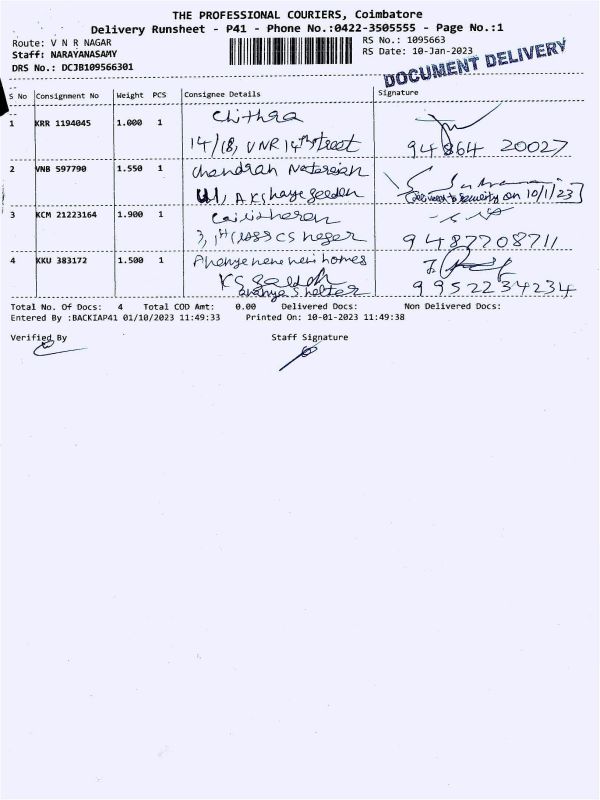 THE PROFESSIONAL COURIERS, Coimbatore
Delivery Runsheet - P41 - Phone No.:0422-3505555 - Page No.:1
Route: V N R NAGAR
Staff: NARAYANASAMY
DRS No.: DCJB109566301
RS No.: 1095663
RS Date: 10-Jan-2023
DOCUMENT DELIVERY
S No Consignment No Weight PCS Consignee Details Signature
1 KRR 1194045 1.000 1 Chithra
14/18, VNR 14th street 94864 20027
2 VNB 597790 1.550 1 chandran Natarajan
U1, Akshaya Garden Delivered to Security on 10/1/23
3 KCM 21223164 1.900 1
3, 1st cross CS nager 9487708711
4 KKU 383172 1.500 1 homes
9952234234
Total No. Of Docs: 4 Total COD Amt: 0.00 Delivered Docs: Non Delivered Docs:
Entered By :BACKIAP41 01/10/2023 11:49:33 Printed On: 10-01-2023 11:49:38
Verified By Staff Signature